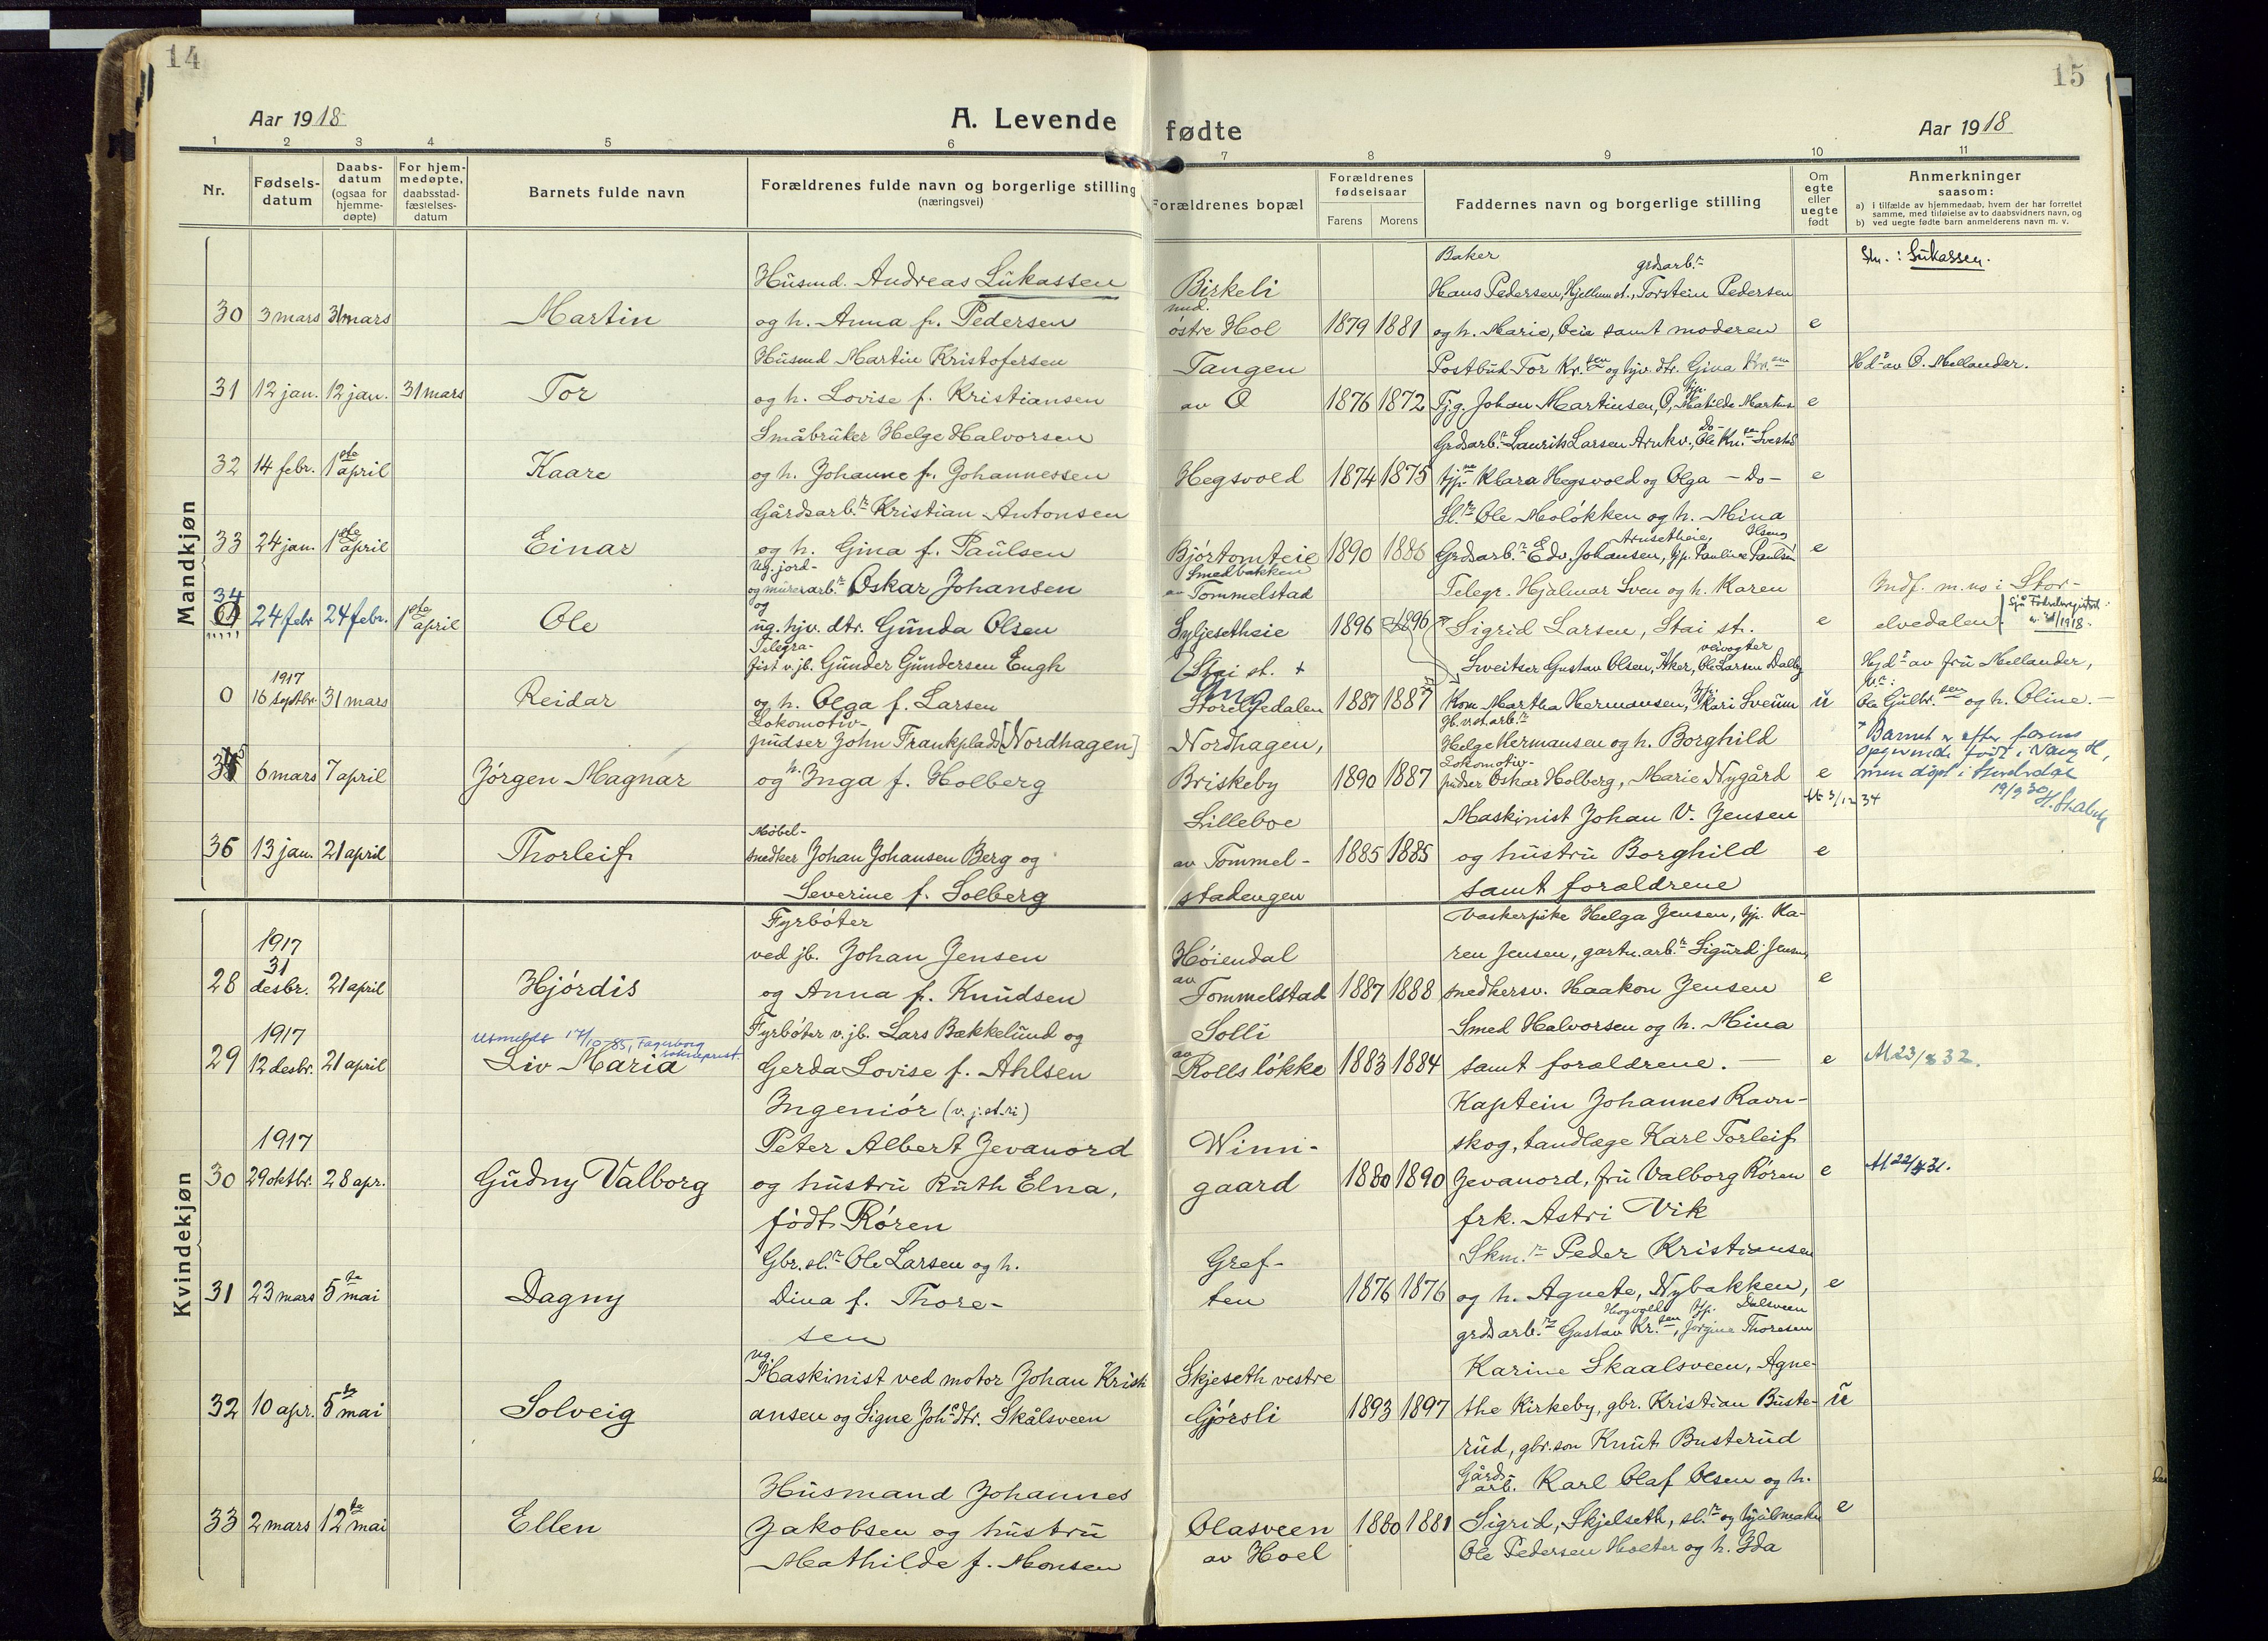 14
15
Aar 1918
A. Levende
fødte
Aar 1918
1 2 3 4 5 6 7 8 9 10 11
Nr.
Fødsels-
datum
Daabs-
datum
(ogsaa for
hjemme-
døpte)
For hjem-
medøpte,
daabsstad-
fæstelses-
datum
Barnets fulde navn
Forældrenes fulde navn og borgerlige stilling
(næringsvei)
Forældrenes bopæl
Forældrenes
fødselsaar
Farens Morens
Faddernes navn og borgerlige stilling
Om
egte
eller
uegte
født
Anmerkninger
saasom:
a) i tilfælde av hjemmedaab, hvem der har forrettet
samme, med tilføielse av to daabsvidners navn, og
b) ved uegte fødte barn anmelderens navn m. v.
Mandkjøn
30 3 mars 31 mars Martin
Husmd. Andreas Lukassen
og h. Anna f. Pedersen
Birkeli
und.
østre Hol
1879 1881
Baker grdsarb.r
Hans Pedersen, Hjellum st., Torstein Pedersen
og h. Marie, samt moderen
e
Stn.: Lukassen.
31 12 jan. 12 jan. 31 mars Tor
Husmd Martin Kristofersen
og h. Lovise f. Kristiansen
Tangen
av O
1876 1872
Postbud Tor Kr.sen og hjv. dtr. Gina Kr.sen
Tj.g. Johan Martinsen, O, tjp. Matilde Martins
e
Hd. av O. Mellander.
32 14 febr. 1ste april Kaare
Småbruker Helge Halvorsen
og h. Johanne f. Johannessen
Hegsvold
1874 1875
Grdsarb.r Laurits Larsen Arnkv., Do- Ole Kr.sen
tjp. Klara Hegsvold og Olga - Do -
e
33 24 jan. 1ste april Einar
Gårdsarb.r Kristian Antonsen
og h. Gina f. Paulsen
Bjørtomteie
1890 1886
Sl.r Ole Moløkken og h. Mina
Grdsarb.r Edv. Johansen, tjp. Pauline Paulsen
e
34 24 febr 24 febr. 1ste april Ole
Ug. jord-
og murerarb.r Oskar Johansen
og
ug. hjv. dtr. Gunda Olsen
Smedbakken
av Tommelstad
Syljesetheie
1896 1896
Telegr. Hjalmar Sven og h. Karen
Sigrid Larsen, Stai st.
e
Indf. m. no i Stor-
elvedalen
0 1917 16 septbr. 31 mars Reidar
Telegra-
fist v. jb. Gunder Gundersen Engh
og h. Olga f. Larsen
Stai st. +
Storelvedalen
1887 1887
veivogter
Sveitser Gustav Olsen, Åker, Ole Larsen Dalby
Kom. Martha Hermansen, tjp. Kari Sveum
u
Hjd. av fru Mellander,
Ole Gulbr.sen og h. Oline. -
35 6 mars 7 april Jørgen Magnar
Lokomotiv-
pudser John Frankplads [Nordhagen]
og h. Inga f. Holberg
Nordhagen,
Briskeby
1890 1887
H.v.st.arb.r
Helge Hermansen og h. Borghild
Lokomotiv-
pudser Oskar Holberg, Marie Nygård
e
Att 3/12 34
+ Barnet er efter farens
opgivende født i Vang H,
men døpt i
19/9 30
36 13 jan. 21 april Thorleif
Møbel-
snedker Johan Johansen Berg og
Severine f. Solberg
Lilleboe
av Tommel-
stadengen
1885 1885
Maskinist Johan V. Jensen
og hustru Borghild
samt forældrene
e
Kvindekjøn
28 1917 31 desbr. 21 april Hjørdis
Fyrbøter
ved jb. Johan Jensen
og Anna f. Knudsen
Høiendal
av
Tommelstad
1887 1888
Vaskerpike Helga Jensen, tjp. Ka-
ren Jensen, gartn.arb.r Sigurd Jensen,
snedkersv. Haakon Jensen
e
29 1917 12 desbr. 21 april
Utmeldt 17/10-85, Fagerborg
sokneprest.
Liv Maria
Fyrbøter v. jb. Lars Bækkelund og
Gerda Lovise f. Ahlsen
Solli
av
Rollsløkke
1883 1884
Smed Halvorsen og h. Mina
samt forældrene. -
e
At 23/8 32.
30 1917 29 oktbr. 28 apr. Gudny Valborg
Ingeniør (v. j.st.ri)
Peter Albert Jevanord
og hustru Ruth Elna,
født Røren
Winni-
gaard
1880 1890
Kaptein Johannes Ravn-
skog, tandlæge Karl Torleif
Jevanord, fru Valborg Røren
frk. Astri Vik
e
31 23 mars 5te mai Dagny
Gbr. sl.r Ole Larsen og h.
Dina f. Thore-
sen
Gref-
ten
1876 1876
Skm.r Peder Kristiansen
og h. Agnete, Nybakken,
Hogvold tjp. Dalsveen
grdsarb.r Gustav Kr.sen, Jørgine Thoresen
e
32 10 apr. 5te mai Solveig
Ug.
Maskinist ved motor Johan Kristi
ansen og Signe Joh.sdtr. Skålsveen
Skjeseth vestre
Gjørsli
1893 1897
Karine Skaalsveen, Agne-
the Kirkeby, gbr. Kristian Buste-
rud, gbr.son Knut Busterud
u
33 2 mars 12te mai Ellen
Husmand Johannes
Jakobsen og hustru
Mathilde f. Monsen
Olasveen
av Hoel
1880 1881
Gårds-
arb. Karl Olaf Olsen og h.
Sigrid, Skjelseth, sl.r og hjulmaker
Ole Pedersen Holter og h. Ida
e